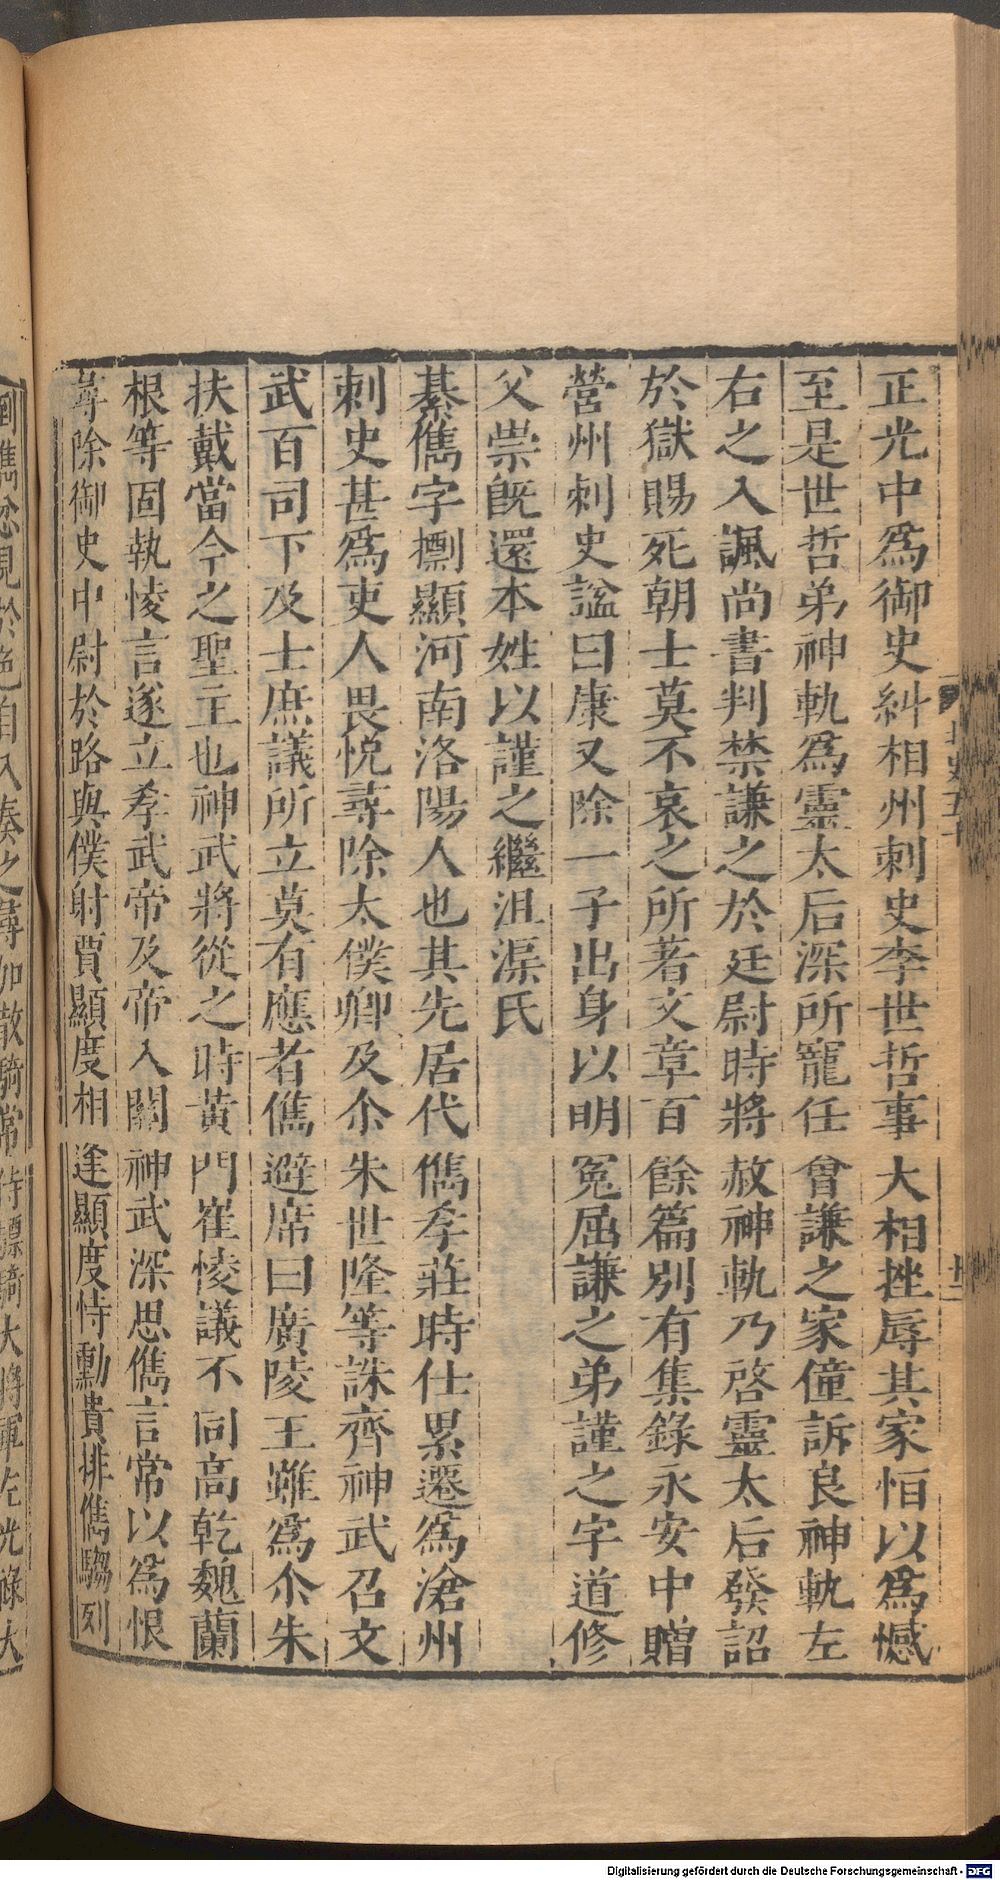 正光中爲御史糾相州刺史李世哲事大相挫辱其家怕以爲憾
至是世哲弟神軌爲靈太后深所寵任曾謙之家僮訴良神軌左
右之入諷尚書判禁謙之於廷尉時將赦神軌乃啓靈太后發詔
於獄賜死朝士莫不哀之所著文章百餘篇別有集錄永安中贈
營州刺史諡曰康又除一子出身以明冤屈謙之弟謹之字道修
父崇旣還本姓以謹之繼沮渠氏
綦儁字摽顯河南洛陽人也其先居代儁孝莊時仕累遷爲滄州
刺史甚爲吏人畏悅尋除太僕卿及尒朱世隆等誅齊神武召文
武百司下及士庶議所立莫有應者儁避席曰廣陵王雖爲尒朱
扶戴當今之聖主也神武將從之時黃門崔㥄議不同高乾魏蘭
根等固執㥄言遂立孝武帝及帝入關神武深思儁言常以爲恨
尋除御史中尉於路與僕射賈顯度相逢顯度恃勳貴排儁騶列
倒儁忿見於色自入奏之尋加散騎常侍驃騎大將軍左光祿大
北史五十
Digitalisierung gefördert durch die Deutsche Forschungsgemeinschaft - DFG